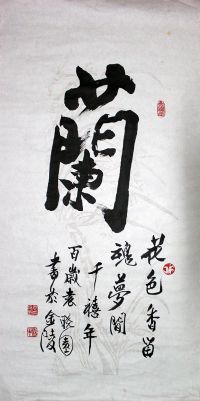 蘭
花色香留
魂夢間
千禧年
百歲老人
書於金陵